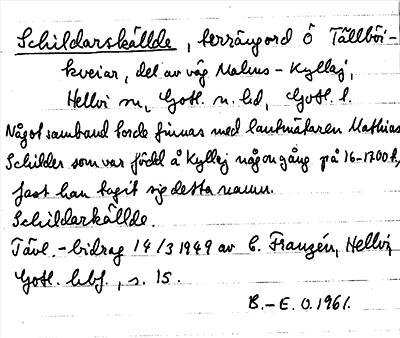 Schildarskällde, terrängord Ö Tällböi-
kveiar, del av väg Malms - Kyllaj,
Hellvi sn, Gotl. n. hd, Gotl. l.
Något samband torde finnas med lantmätaren Mathias
Schilder som var född å Kyllej någon gång på 16-1700t,
fast han tagit sig detta namn.
Schildarkällde.
Tävl.-bidrag 14/3 1949 av C. Franzén, Hellvi,
Gotl. hbf., s. 15.
B.-E. O. 1961.